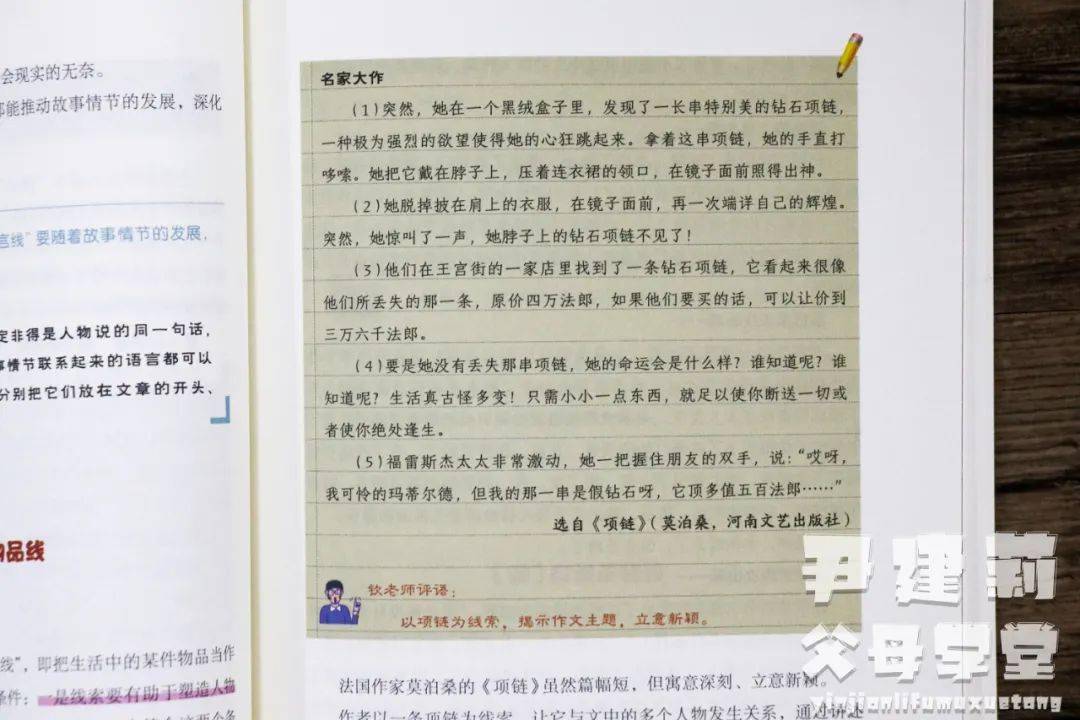 会现实的无奈。
都能推动故事情节的发展，深化
言线”要随着故事情节的发展，
定非得是人物说的同一句话，
事情节联系起来的语言都可以
分别把它们放在文章的开头、
物品线
线”，即把生活中的某件物品当作
条件：一是线索要有助于塑造人物
名家大作
（1）突然，她在一个黑绒盒子里，发现了一长串特别美的钻石项链，
一种极为强烈的欲望使得她的心狂跳起来。拿着这串项链，她的手直打
哆嗦。她把它戴在脖子上，压着连衣裙的领口，在镜子面前照得出神。
（2）她脱掉披在肩上的衣服，在镜子面前，再一次端详自己的辉煌。
突然，她惊叫了一声，她脖子上的钻石项链不见了！
（3）他们在王宫街的一家店里找到了一条钻石项链，它看起来很像
他们所丢失的那一条，原价四万法郎，如果他们要买的话，可以让价到
三万六千法郎。
（4）要是她没有丢失那串项链，她的命运会是什么样？谁知道呢？谁
知道呢？生活真古怪多变！只需小小一点东西，就足以使你断送一切或
者使你绝处逢生。
（5）福雷斯杰太太非常激动，她一把握住朋友的双手，说：“哎呀，
我可怜的玛蒂尔德，但我的那一串是假钻石呀，它顶多值五百法郎……”
选自《项链》（莫泊桑，河南文艺出版社）
钦老师评语：
以项链为线索，揭示作文主题，立意新颖。
法国作家莫泊桑的《项链》虽然篇幅短，但寓意深刻、立意新颖。
作者以一条项链为线索，让它与文中的多个人物发生关系，通过讲述
尹建莉
父母学堂
yinjianlifumuxuetang